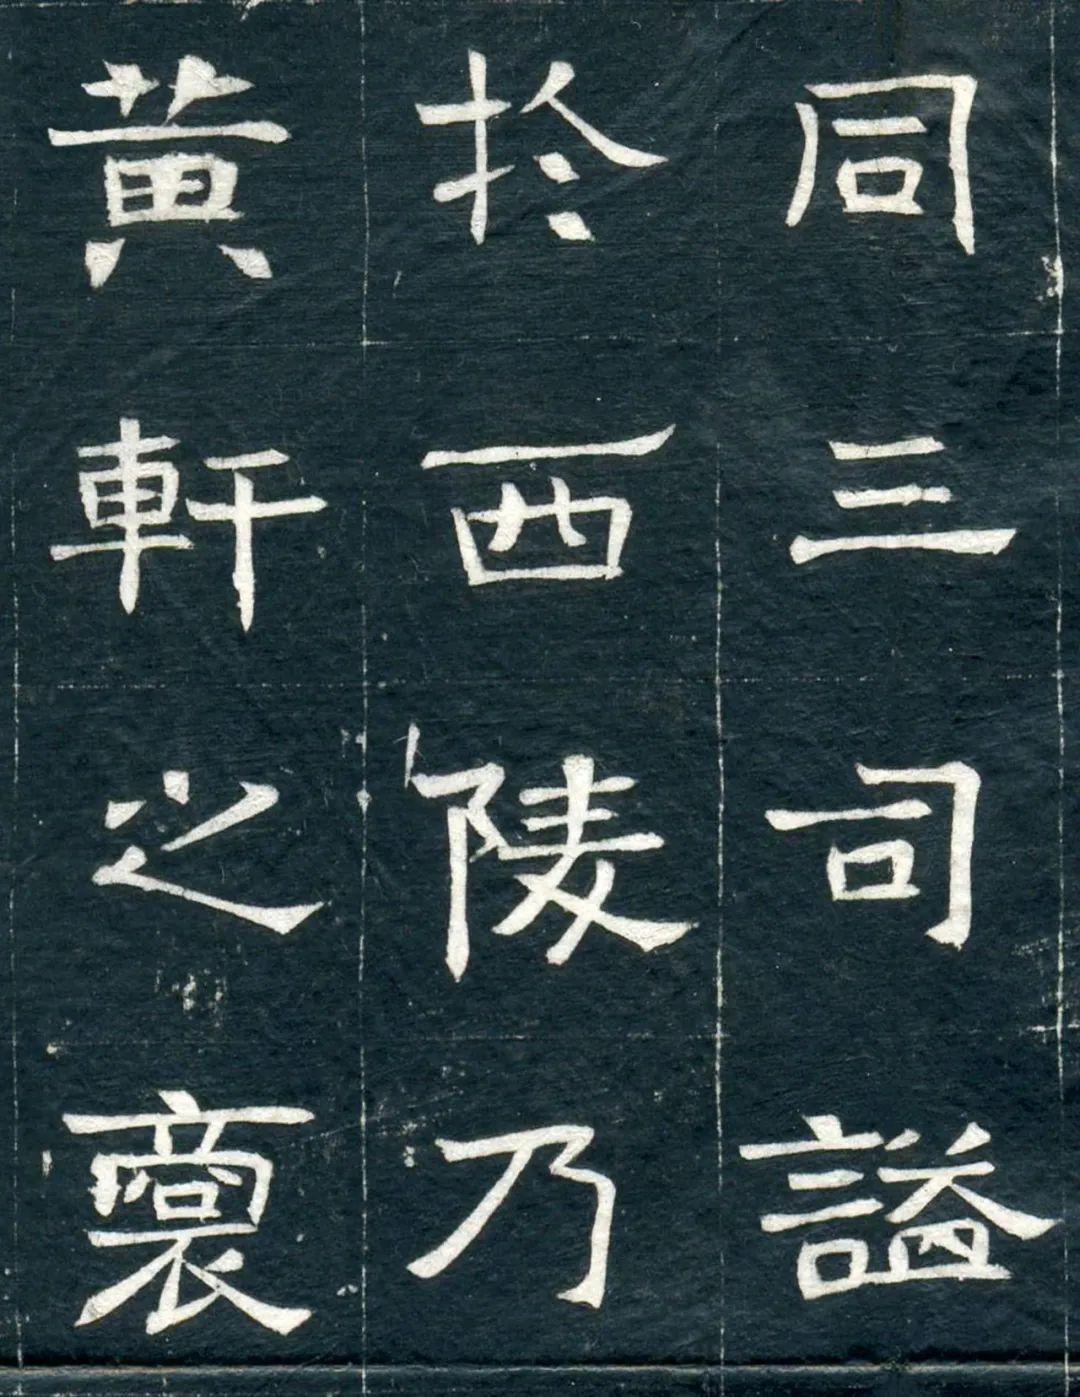 同三司謚
扵西陵乃
黃軒之裔